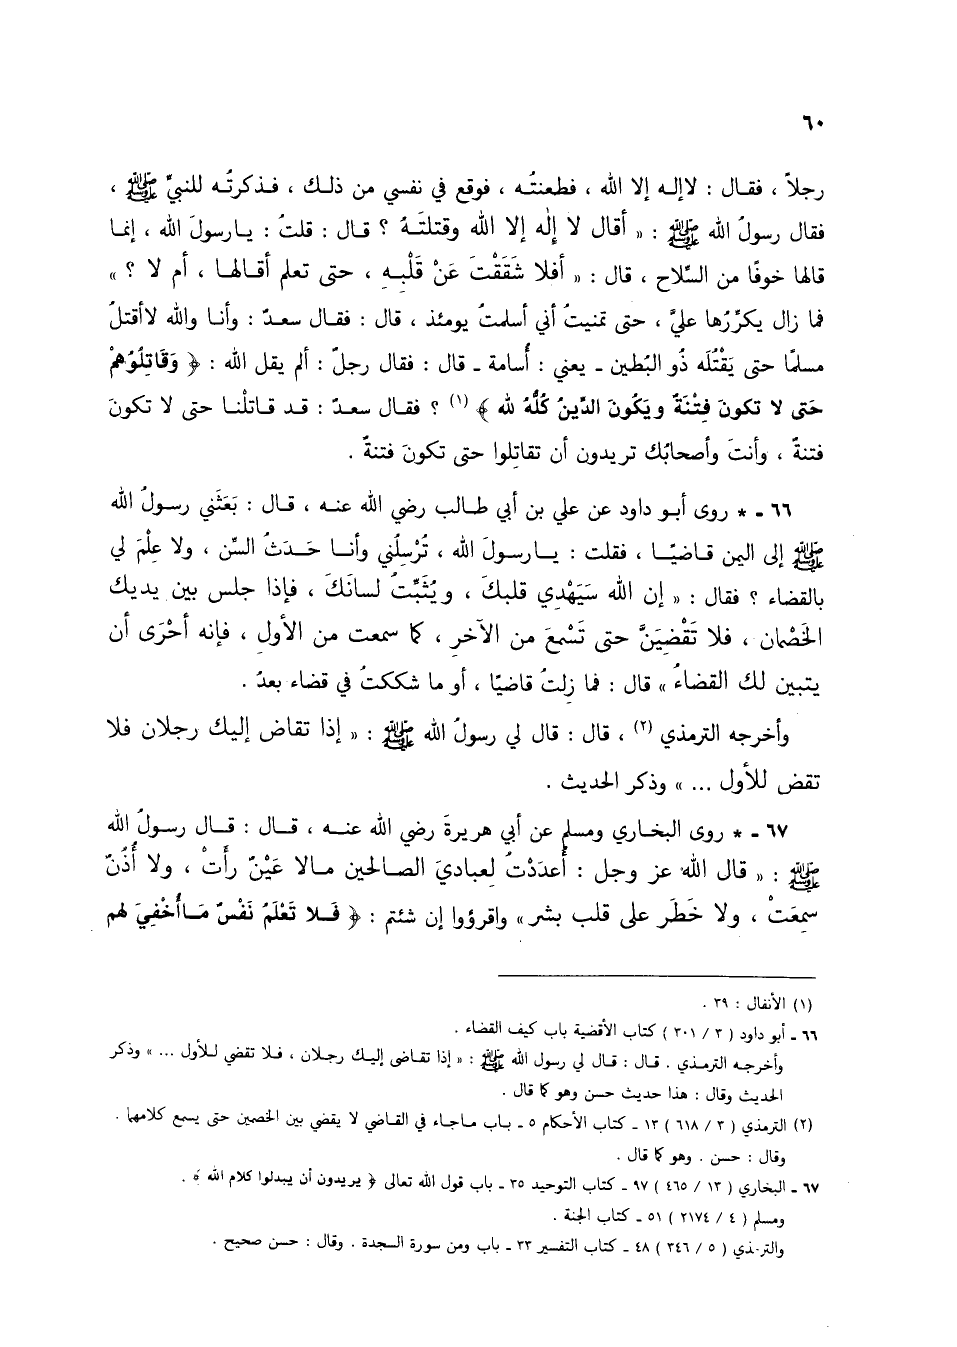 ٦٠
رجلاً ، فقـال : لاإلـه إلا الله ، فطعنتُـه ، فوقع في نفسي من ذلـك ، فـذكرتُـه للنبيِّ ﷺ ،
فقال رسولُ الله ﷺ : « أقال لا إلٰه إلا الله وقتلتَـهُ ؟ قـال : قلتُ : يـارسولَ الله ، إنمـا
قالها خوفًا من السِّلاح ، قال : « أفلا شَقَقْتَ عَنْ قَلْبـهِ ، حتى تعلم أقـالهـا ، أم لا ؟ »
فما زال يكرِّرُها عليَّ ، حتى تمنيتُ أني أسلمتُ يومئذ ، قال : فقـال سعـدٌ : وأنـا والله لاأقتلُ
مسلمًا حتى يَقْتُلَه ذُو البُطين ـ يعني : أُسامة ـ قال : فقال رجلٌ : ألم يقل الله : ﴿ وَقَاتِلُوهُمْ
حَتى لا تكونَ فِتْنَةٌ ويَكُونَ الدِّينُ كُلُّهُ لله ﴾ (١) ؟ فقـال سعـدٌ : قـد قـاتلْنـا حتى لا تكونَ
فتنةٌ ، وأنتَ وأصحابُك تريدون أن تقاتِلوا حتى تكونَ فتنةٌ .
٦٦ ـ * روى أبـو داود عن علي بن أبي طـالب رضي الله عنـه ، قـال : بَعَثَني رسـولُ الله
ﷺ إلى اليمن قـاضيًـا ، فقلت : يــارسولَ الله ، تُرْسِلُني وأنـا حَـدَثُ السِّن ، ولا عِلْمَ لي
بالقضاء ؟ فقال : « إن الله سَيَهْدِي قلبكَ ، ويُثَبِّتُ لسانَكَ ، فإذا جلس بين يديك
الخَصْمان ، فلا تَقْضِيَنَّ حتى تَسْمعَ من الآخر ، كما سمعت من الأول ، فإنه أحْرَى أن
يتبين لك القضاءُ » قال : فما زلتُ قاضيًا ، أو ما شككتُ في قضاء بعدُ .
وأخرجه الترمذي (٢) ، قال : قال لي رسولُ الله ﷺ : « إذا تقاض إليك رجلان فلا
تقض للأول ... » وذكر الحديث .
٦٧ ـ * روى البخـاري ومسلم عن أبي هريرةَ رضي الله عنــه ، قـال : قـال رسولُ الله
ﷺ : « قال الله عز وجل : أَعدَدْتُ لِعباديَ الصـالحين مـالا عَيْنٌ رأتْ ، ولا أُذُنٌ
سمِعَتْ ، ولا خَطَر على قلب بشر » واقرؤوا إن شئتم : ﴿ فَـلا تَعْلَمُ نَفْسٌ مَـاأُخْفِيَ لهم
(١) الأنفال : ٣٩ .
٦٦ ـ أبو داود ( ٣ / ٣٠١ ) كتاب الأقضية باب كيف القضاء .
وأخرجـه الترمـذي . قـال : قـال لي رسول الله ﷺ : « إذا تقـاضى إليـك رجـلان ، فـلا تقضي للأول ... » وذكر
الحديث وقال : هذا حديث حسن وهو كما قال .
(٢) الترمذي ( ٣ / ٦١٨ ) ١٣ ـ كتاب الأحكام ٥ ـ بـاب مـاجـاء في القـاضي لا يقضي بين الخصمين حتى يسمع كلامهما .
وقال : حسن . وهو كما قال .
٦٧ ـ البخاري ( ١٣ / ٤٦٥ ) ٩٧ ـ كتاب التوحيد ٣٥ ـ باب قول الله تعالى ﴿ يريدون أن يبدلوا كلام الله ﴾ .
ومسلم ( ٤ / ٢١٧٤ ) ٥١ ـ كتاب الجنة .
والترمذي ( ٥ / ٣٤٦ ) ٤٨ ـ كتاب التفسير ٣٣ ـ باب ومن سورة السجدة . وقال : حسن صحيح .